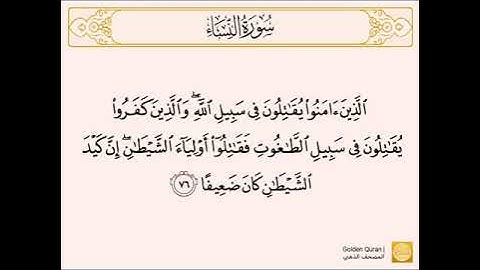 سُورَةُ النِّسَاءِ
الَّذِينَ ءَامَنُوا۟ يُقَـٰتِلُونَ فِى سَبِيلِ ٱللَّهِ ۖ وَٱلَّذِينَ كَفَرُوا۟
يُقَـٰتِلُونَ فِى سَبِيلِ ٱلطَّـٰغُوتِ فَقَـٰتِلُوٓا۟ أَوْلِيَآءَ ٱلشَّيْطَـٰنِ ۖ إِنَّ كَيْدَ
ٱلشَّيْطَـٰنِ كَانَ ضَعِيفًا ٧٦
Golden Quran |
المصحف الذهبي